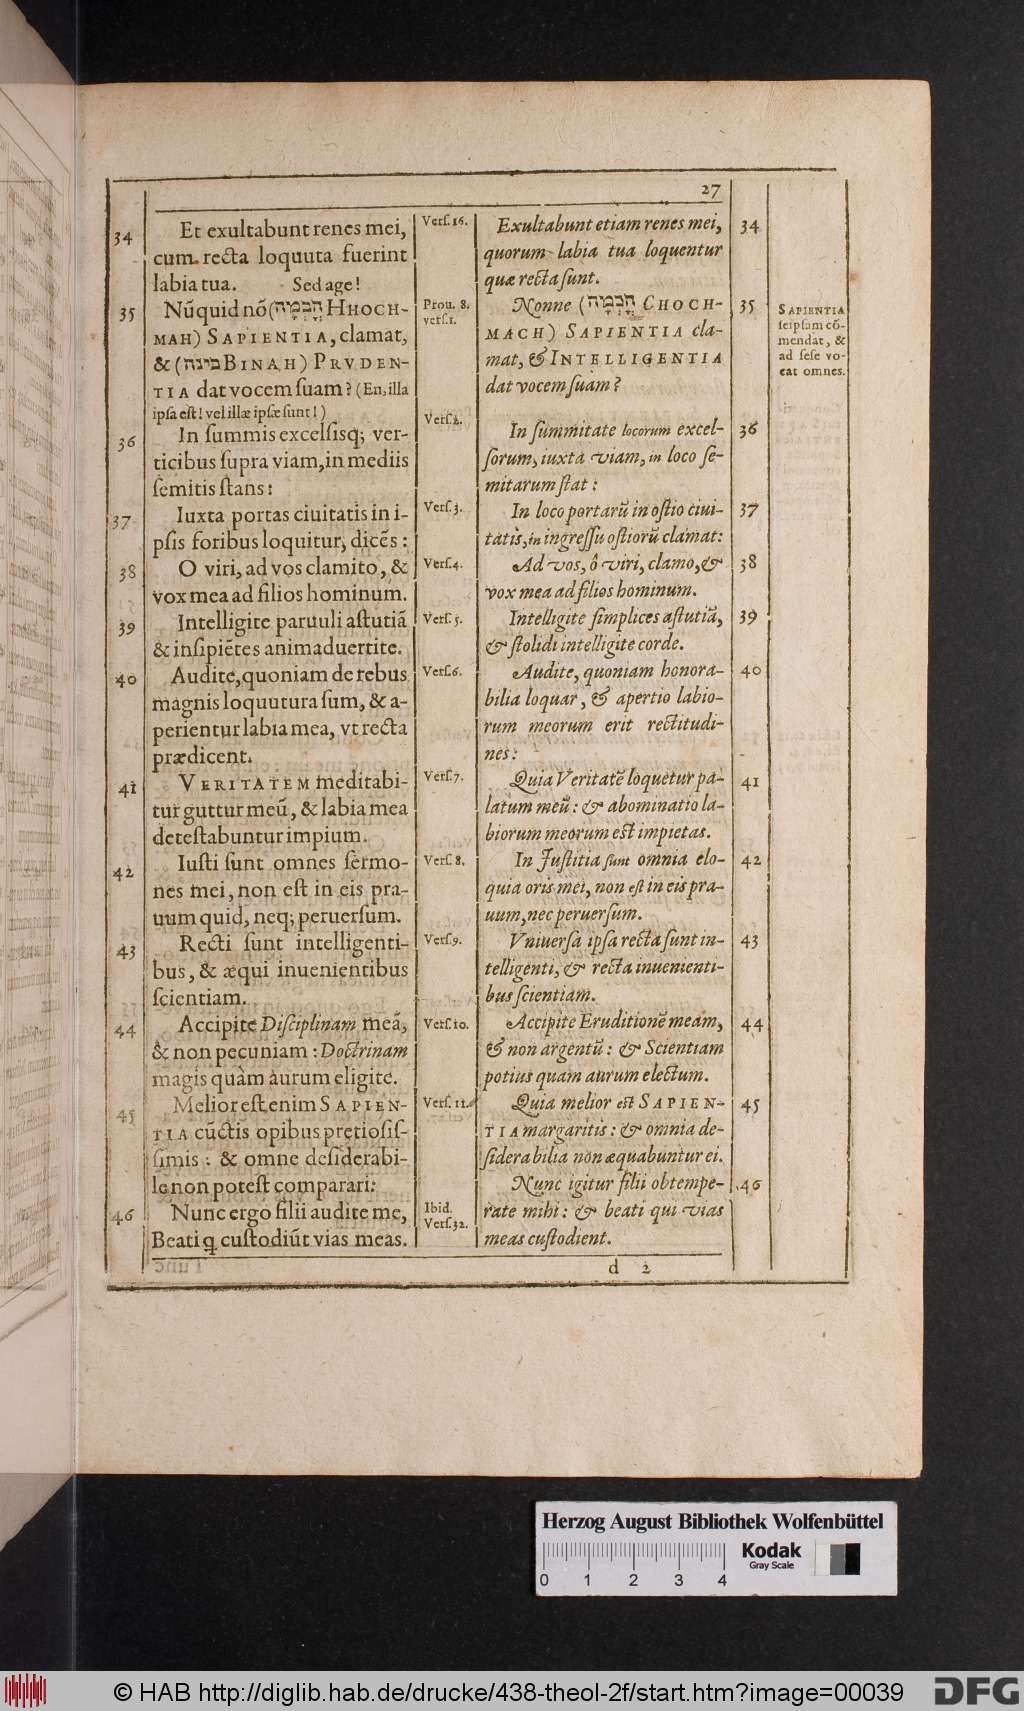 27
34
Et exultabunt renes mei,
cum recta loquuta fuerint
labia tua. Sed age!
35
Nũquid nõ (חָכְמָה HHOCH-
MAH) SAPIENTIA, clamat,
& (בינה BINAH) PRVDEN-
TIA dat vocem suam? (En, illa
ipsa est! vel illæ ipsæ sunt!)
36
In summis excelsisq; ver-
ticibus supra viam, in mediis
semitis stans:
37
Iuxta portas ciuitatis in i-
psis foribus loquitur, dicẽs:
38
O viri, ad vos clamito, &
vox mea ad filios hominum.
39
Intelligite paruuli astutiã
& insipiẽtes animaduertite.
40
Audite, quoniam de rebus
magnis loquutura sum, & a-
perientur labia mea, vt recta
prædicent.
41
VERITATEM meditabi-
tur guttur meũ, & labia mea
detestabuntur impium.
42
Iusti sunt omnes sermo-
nes mei, non est in eis pra-
uum quid, neq; peruersum.
43
Recti sunt intelligenti-
bus, & æqui inuenientibus
scientiam.
44
Accipite Disciplinam meã,
& non pecuniam: Doctrinam
magis quàm aurum eligite.
45
Melior est enim SAPIEN-
TIA cũctis opibus pretiosis-
simis: & omne desiderabi-
le non potest comparari:
46
Nunc ergo filii audite me,
Beati q̃ custodiũt vias meas.
Vers. 16.
Prou. 8.
vers. 1.
Vers. 2.
Vers. 3.
Vers. 4.
Vers. 5.
Vers. 6.
Vers. 7.
Vers. 8.
Vers. 9.
Vers. 10.
Vers. 11.
Ibid.
Vers. 32.
Exultabunt etiam renes mei,
34
quorum labia tua loquentur
quæ recta sunt.
Nonne (חָכְמָה CHOCH-
35
MACH) SAPIENTIA cla-
mat, & INTELLIGENTIA
dat vocem suam?
In summitate locorum excel-
36
sorum, iuxta viam, in loco se-
mitarum stat:
In loco portarũ in ostio ciui-
37
tatis, in ingressu ostiorũ clamat:
Ad vos, ô viri, clamo, &
38
vox mea ad filios hominum.
Intelligite simplices astutiã,
39
& stolidi intelligite corde.
Audite, quoniam honora-
40
bilia loquar, & apertio labio-
rum meorum erit rectitudi-
nes:
Quia Veritatẽ loquetur pa-
41
latum meũ: & abominatio la-
biorum meorum est impietas.
In Justitia sunt omnia elo-
42
quia oris mei, non est in eis pra-
uum, nec peruersum.
Vniuersa ipsa recta sunt in-
43
telligenti, & recta inuenienti-
bus scientiam.
Accipite Eruditionẽ meam,
44
& non argentũ: & Scientiam
potius quam aurum electum.
Quia melior est SAPIEN-
45
TIA margaritis: & omnia de-
siderabilia non æquabuntur ei.
Nunc igitur filii obtempe-
46
rate mihi: & beati qui vias
meas custodient.
SAPIENTIA
seipsam cõ-
mendat, &
ad sese vo-
cat omnes.
d 2
Herzog August Bibliothek Wolfenbüttel
0 1 2 3 4
Kodak
Gray Scale
© HAB http://diglib.hab.de/drucke/438-theol-2f/start.htm?image=00039
DFG